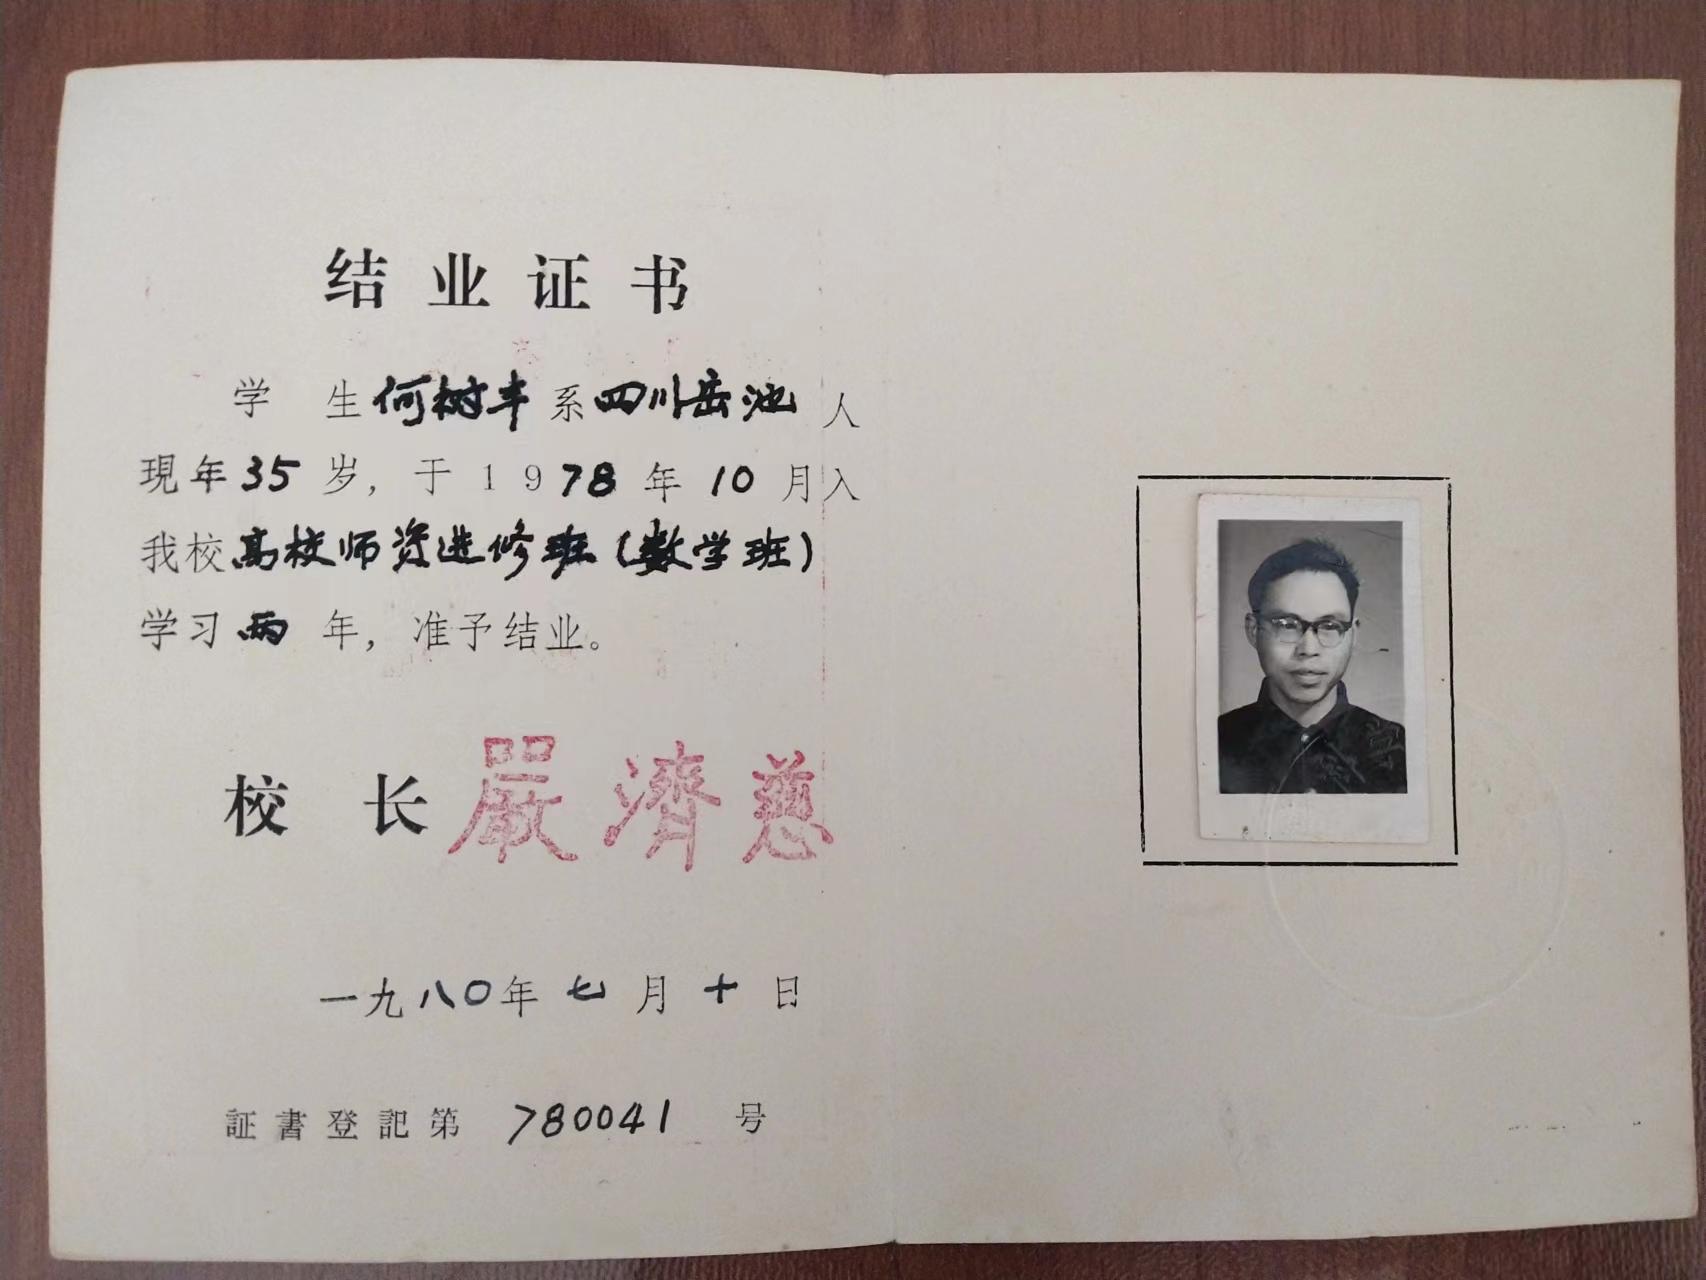 结业证书
学生何树丰系四川岳池人
現年35岁,于1978年10月入
我校高校师资进修班(数学班)
学习两年,准予结业。
校长嚴濟慈
一九八〇年七月十日
証書登記第780041号